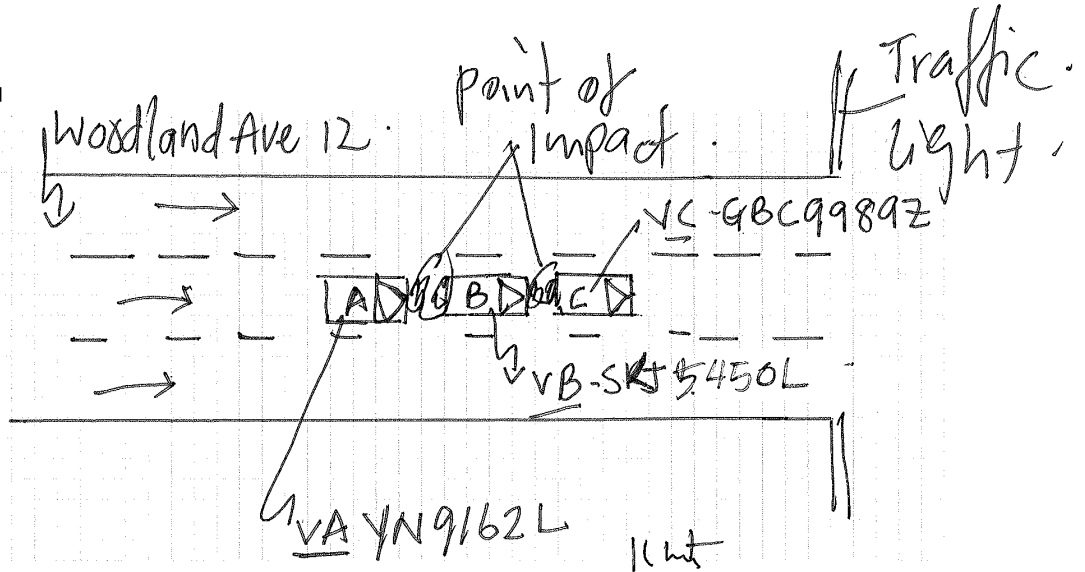 Woodland Ave 12.
point of
Impact.
Traffic.
Light.
VC-GBC9989Z
A
B
C
VB-SKJ5450L
VA YN9162L